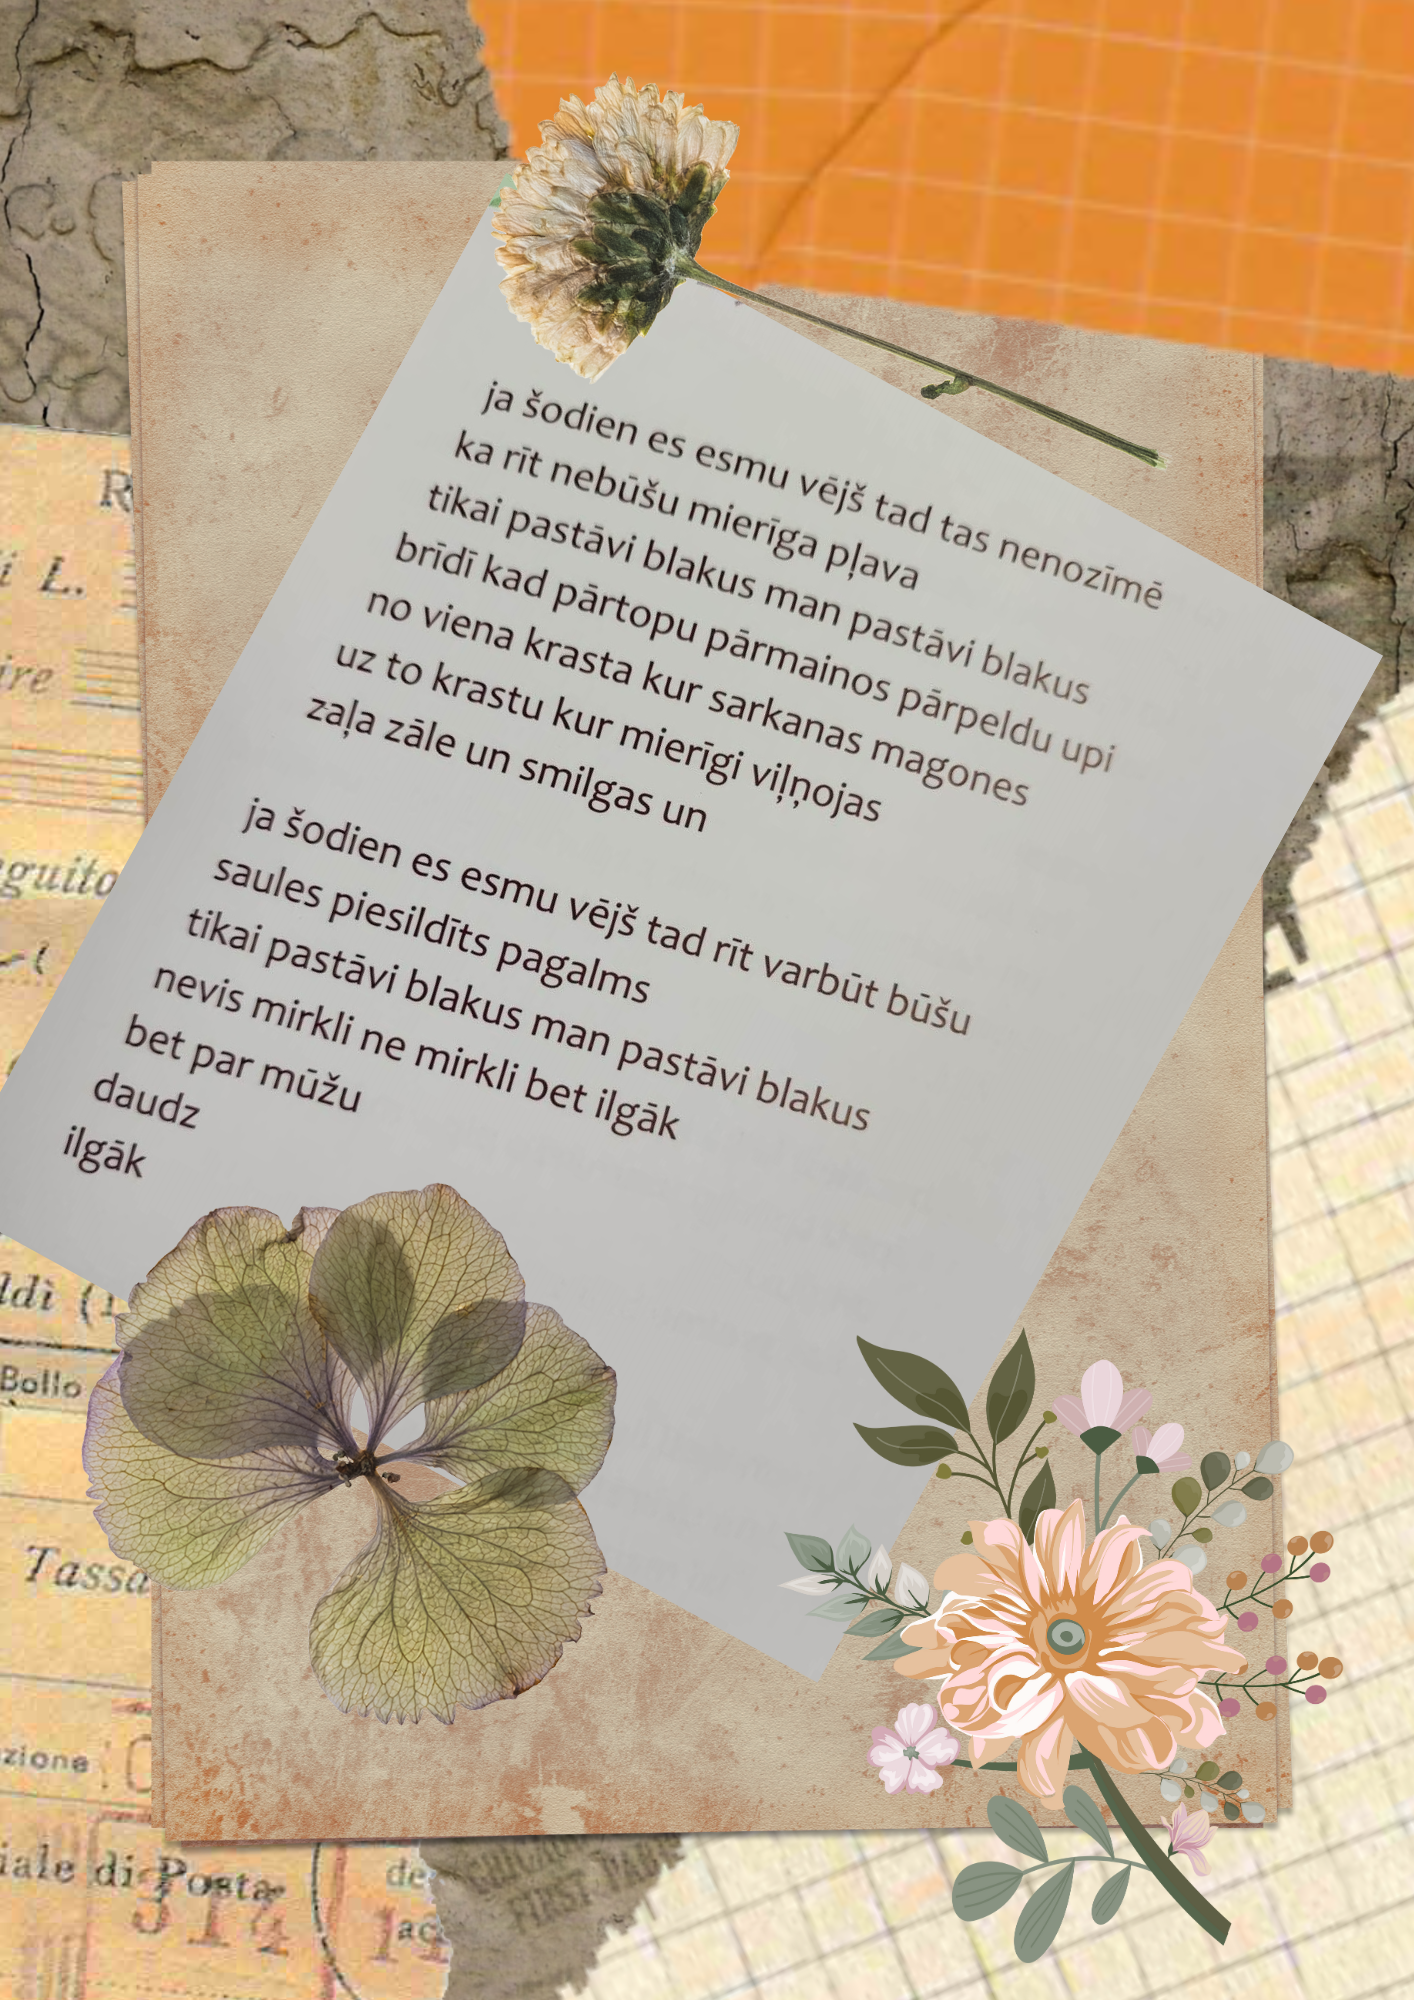 ja šodien es esmu vējš tad tas nenozīmē
ka rīt nebūšu mierīga pļava
tikai pastāvi blakus man pastāvi blakus
brīdī kad pārtopu pārmainos pārpeldu upi
no viena krasta kur sarkanas magones
uz to krastu kur mierīgi viļņojas
zaļa zāle un smilgas un
ja šodien es esmu vējš tad rīt varbūt būšu
saules piesildīts pagalms
tikai pastāvi blakus man pastāvi blakus
nevis mirkli ne mirkli bet ilgāk
bet par mūžu
daudz
ilgāk
R
i L.
ire
guito
ldì (1
Bollo
Tassa
zione
iale di Posta
314
de